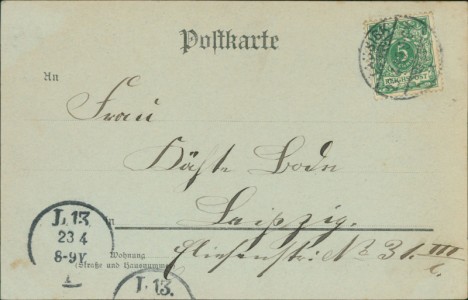 Postkarte
An
Frau
Käthe Bode
in Leipzig.
Eliesenstr. No 31. III
Wohnung
(Straße und Hausnummer)
5
REICHSPOST
L 13.
23 4
8-9V
L 13.